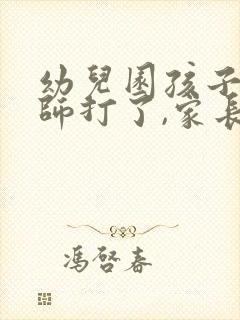 幼兒園孩子
師打了,家長
馮啓春